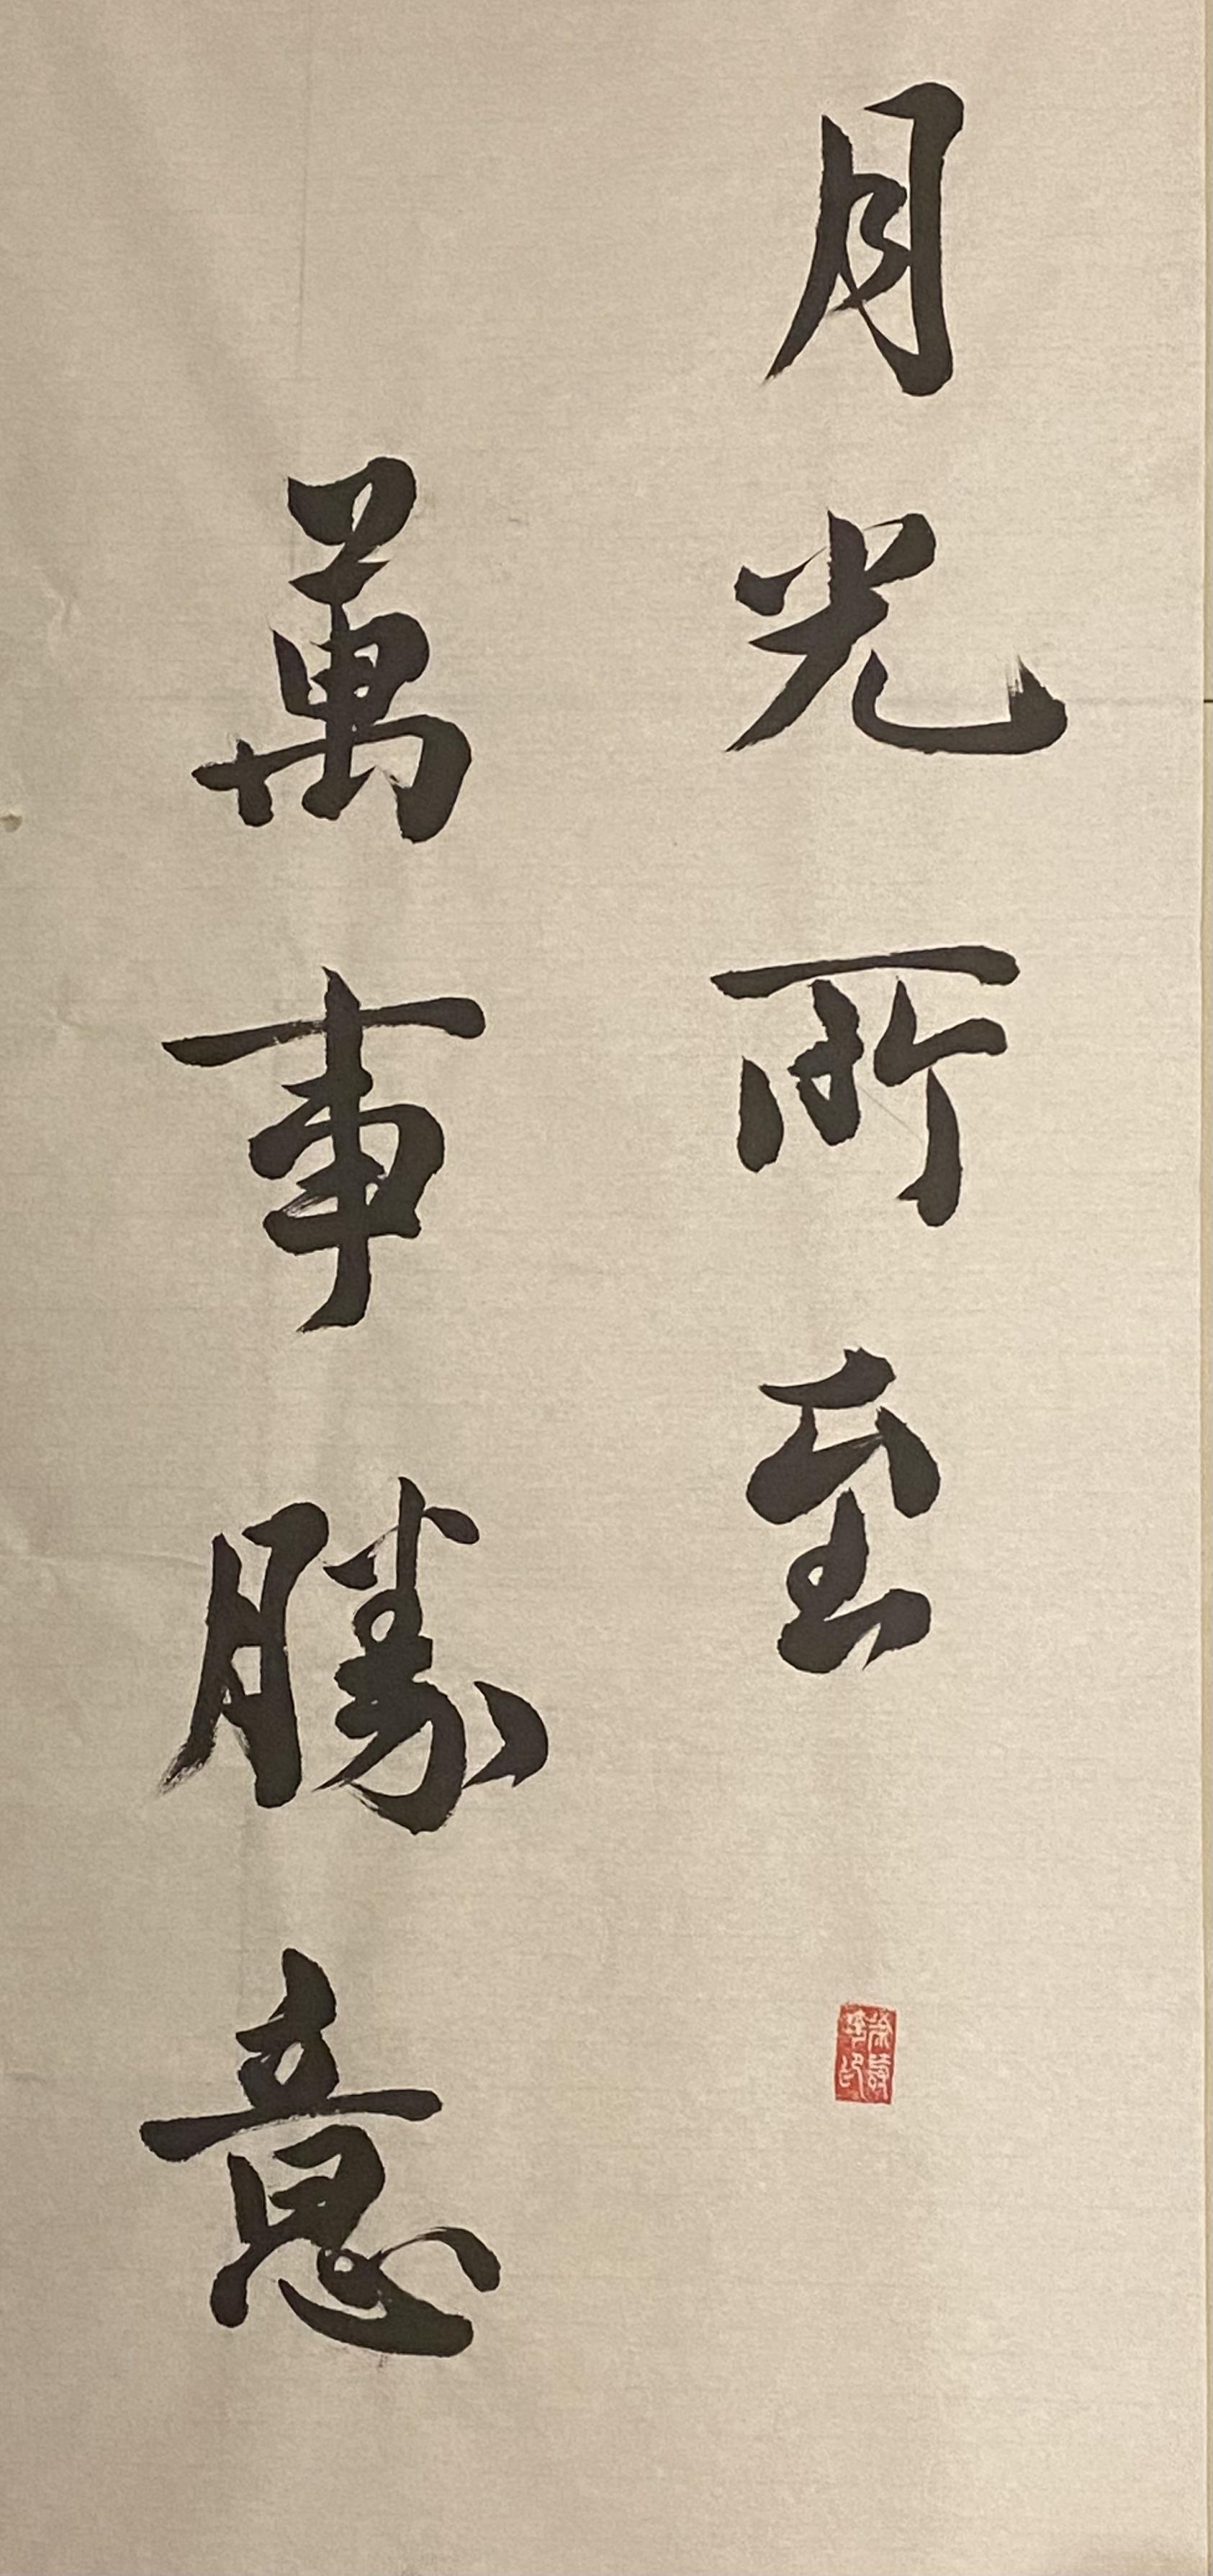 月光所至
萬事勝意